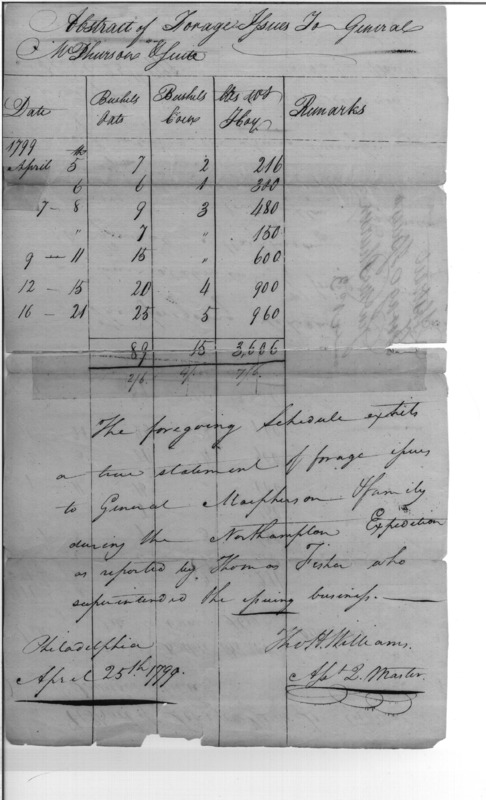 Abstract of Forage Issues To General
McPhurson & Suite
Date Bushels Oats Bushels Corn lbs wt Hay Remarks
1799
April 5th 7 2 216
6 6 1 300
7 - 8 9 3 480
" 7 " 150
9 - 11 15 " 600
12 - 15 20 4 900
16 - 21 25 5 960
89 15 3,606
2/6 7/6
The foregoing Schedule exhits
a true statement of forage issues
to General Macpherson & family
during the Northampton Expedition
as reported by Thomas Fisher who
superintended the issuing business.
Philadelphia Tho H. Williams.
April 25th 1799. Asst Q. Master.